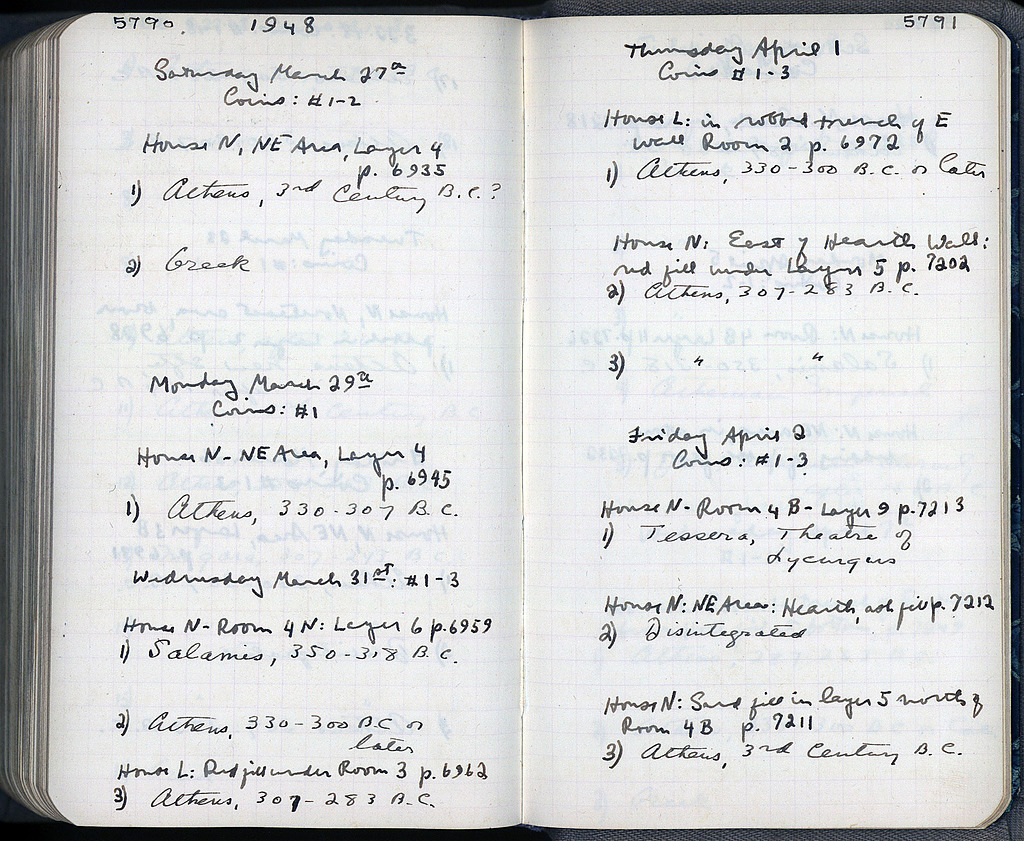 5790. 1948
Saturday March 27th
Coins: #1-2
House N, NE Area, Layer 4
p. 6935
1) Athens, 3rd Century B.C.?
2) Greek
Monday March 29th
Coins: #1
House N- NE Area, Layer 4
p. 6945
1) Athens, 330-307 B.C.
Wednesday March 31st: #1-3
House N- Room 4 N: Layer 6 p.6959
1) Salamis, 350-318 B.C.
2) Athens, 330-300 B.C or
later
House L: Red fill under Room 3 p. 6962
3) Athens, 307-283 B.C.
5791
Thursday April 1
Coins #1-3
House L: in robbed trench of E
wall Room 2 p. 6972
1) Athens, 330-300 B.C. or later
House N: East of Hearth Wall:
red fill under Layer 5 p. 7202
2) Athens, 307-283 B.C.
3) " "
Friday April 2
Coins: #1-3
House N- Room 4 B- Layer 9 p.7213
1) Tessera, Theatre of
Lycurgus
House N: NE Area: Hearth, ash fill p. 7212
2) Disintegrated
House N: Sand fill in layer 5 north of
Room 4B p. 7211
3) Athens, 3rd Century B.C.